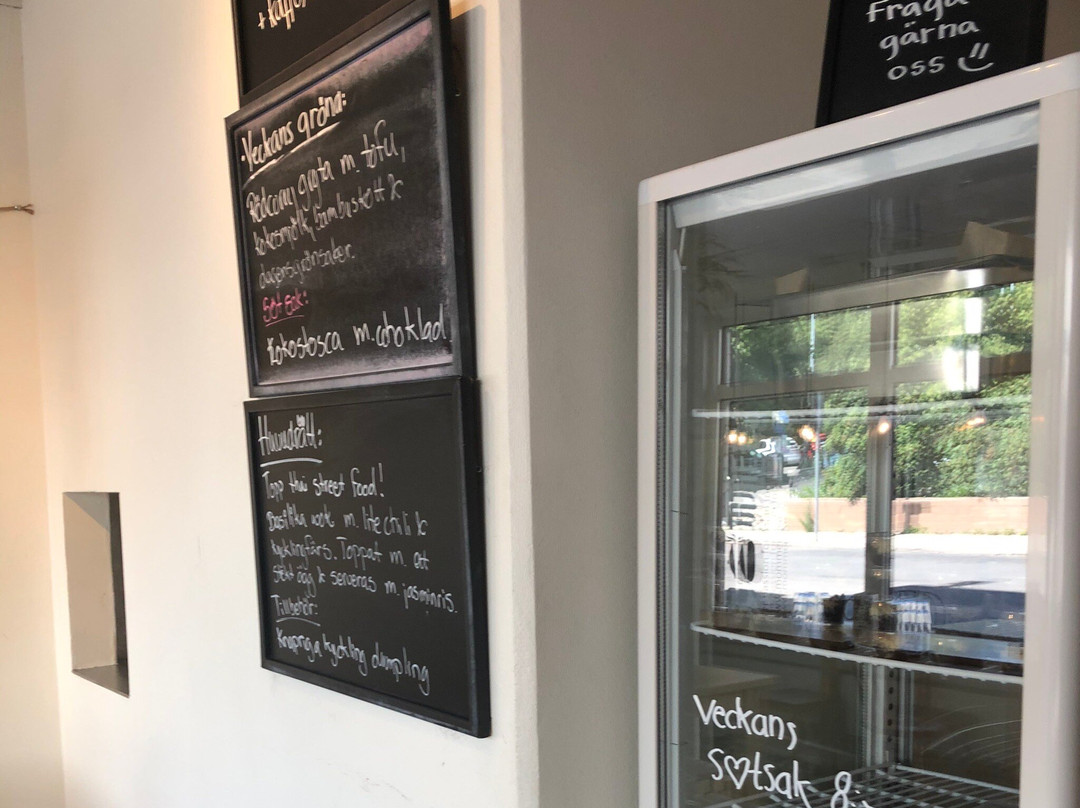 + kaffe
Veckans gröna:
Rödcurry gryta m. tofu,
kokosmjölk, bambuskott &
dagens grönsaker.
Söt sak:
Kokostosca m. choklad
Huvudrätt:
Topp thai street food!
Basilika wok m. lite chili &
kycklingfärs. Toppat m. ett
stekt ägg & serveras m. jasminris.
Tillbehör:
Krispiga kyckling dumpling
Fråga
gärna
oss
Veckans
s♡tsak